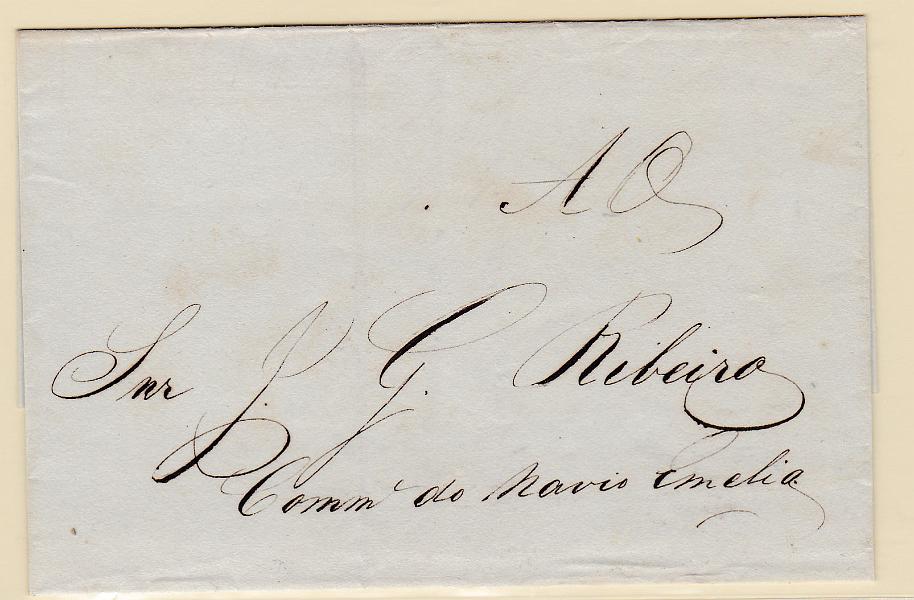 AO
Snr J. G. Ribeiro
Comm.e do Navio Emelia